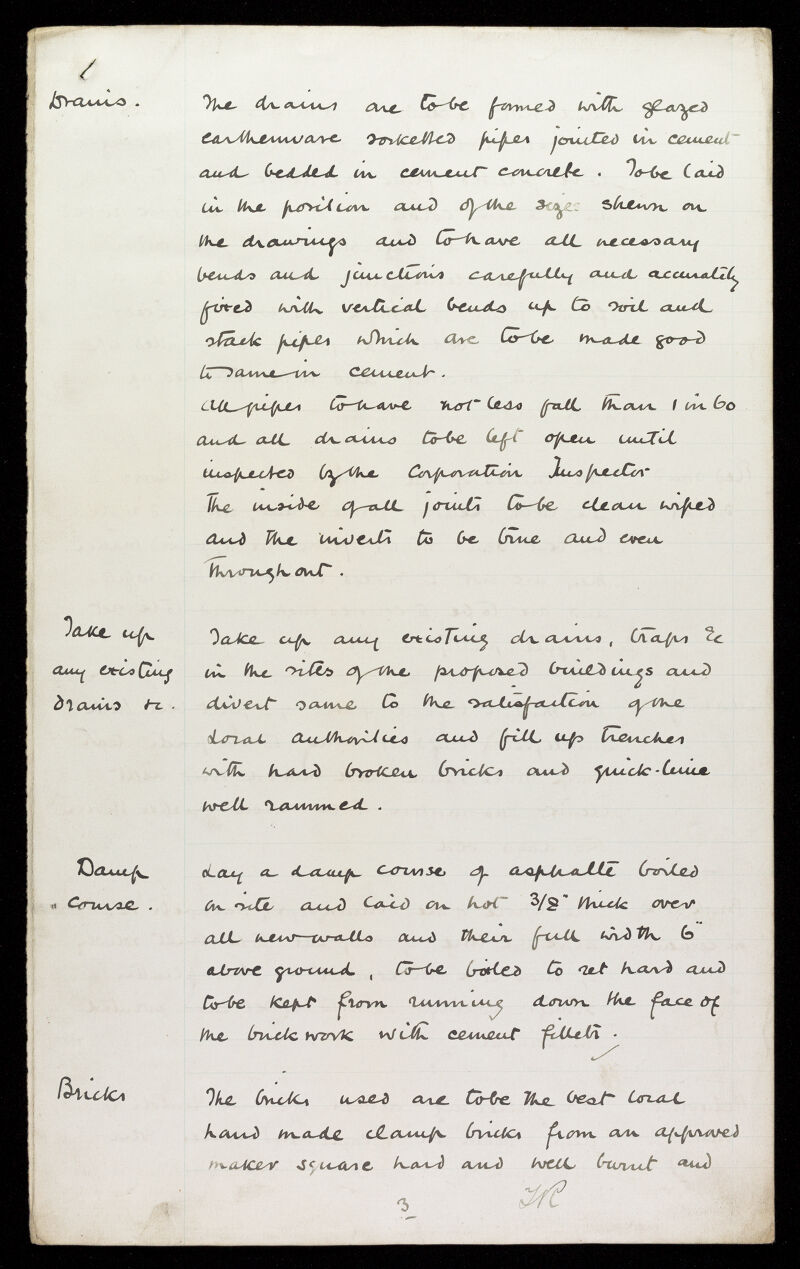 Drains.
The drains are to be formed with glazed
earthenware socketted pipes jointed in cement
and bedded in cement concrete. To be laid
in the position and of the sizes shewn on
the drawings and to have all necessary
bends and junctions carefully and accurately
fixed with vertical bends up to soil and
stack pipes which are to be made good
to same in cement.
All pipes to have not less fall than 1 in 60
and all drains to be left open until
inspected by the Corporation Inspector
The inside of all joints to be clean wiped
and the inverts to be true and even
throughout.
Take up
any existing
drains &c.
Take up any existing drains, traps &c
in the sites of the proposed buildings and
divert same to the satisfaction of the
Local authorities and fill up trenches
with hard broken bricks and quick-lime
well rammed.
Damp
course.
Lay a damp course of asphalte boiled
on site and laid on hot 3/8" thick over
all new walls and their full width 6"
above ground, to be boiled to set hard and
to be kept from running down the face of
the brickwork with cement fillets.
Bricks
The bricks used are to be the best local
hand made clamp bricks from an approved
maker square hard and well burnt and
3